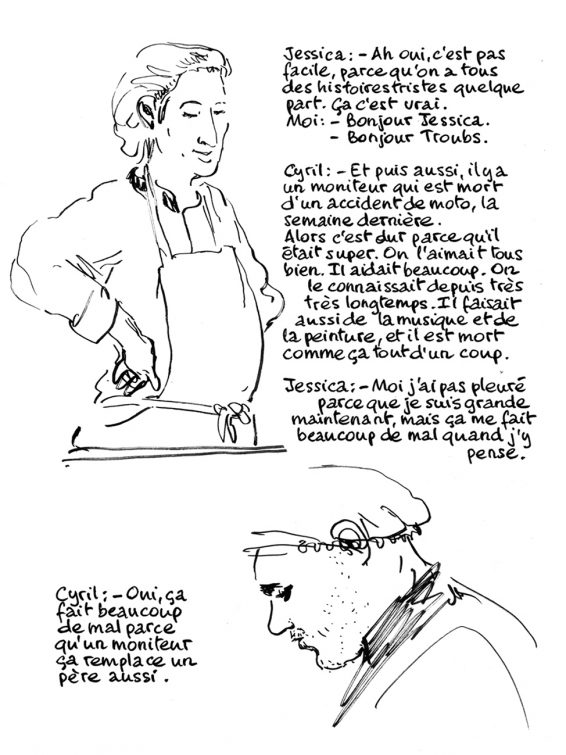 Jessica: - Ah oui, c'est pas
facile, parce qu'on a tous
des histoires tristes quelque
part. Ça c'est vrai.
Moi: - Bonjour Jessica.
- Bonjour Troubs.
Cyril: - Et puis aussi, il y a
un moniteur qui est mort
d'un accident de moto, la
semaine dernière.
Alors c'est dur parce qu'il
était super. On l'aimait tous
bien. Il aidait beaucoup. On
le connaissait depuis très
très longtemps. Il faisait
aussi de la musique et de
la peinture, et il est mort
comme ça tout d'un coup.
Jessica: - Moi j'ai pas pleuré
parce que je suis grande
maintenant, mais ça me fait
beaucoup de mal quand j'y
pense.
Cyril: - Oui, ça
fait beaucoup
de mal parce
qu'un moniteur
ça remplace un
père aussi.